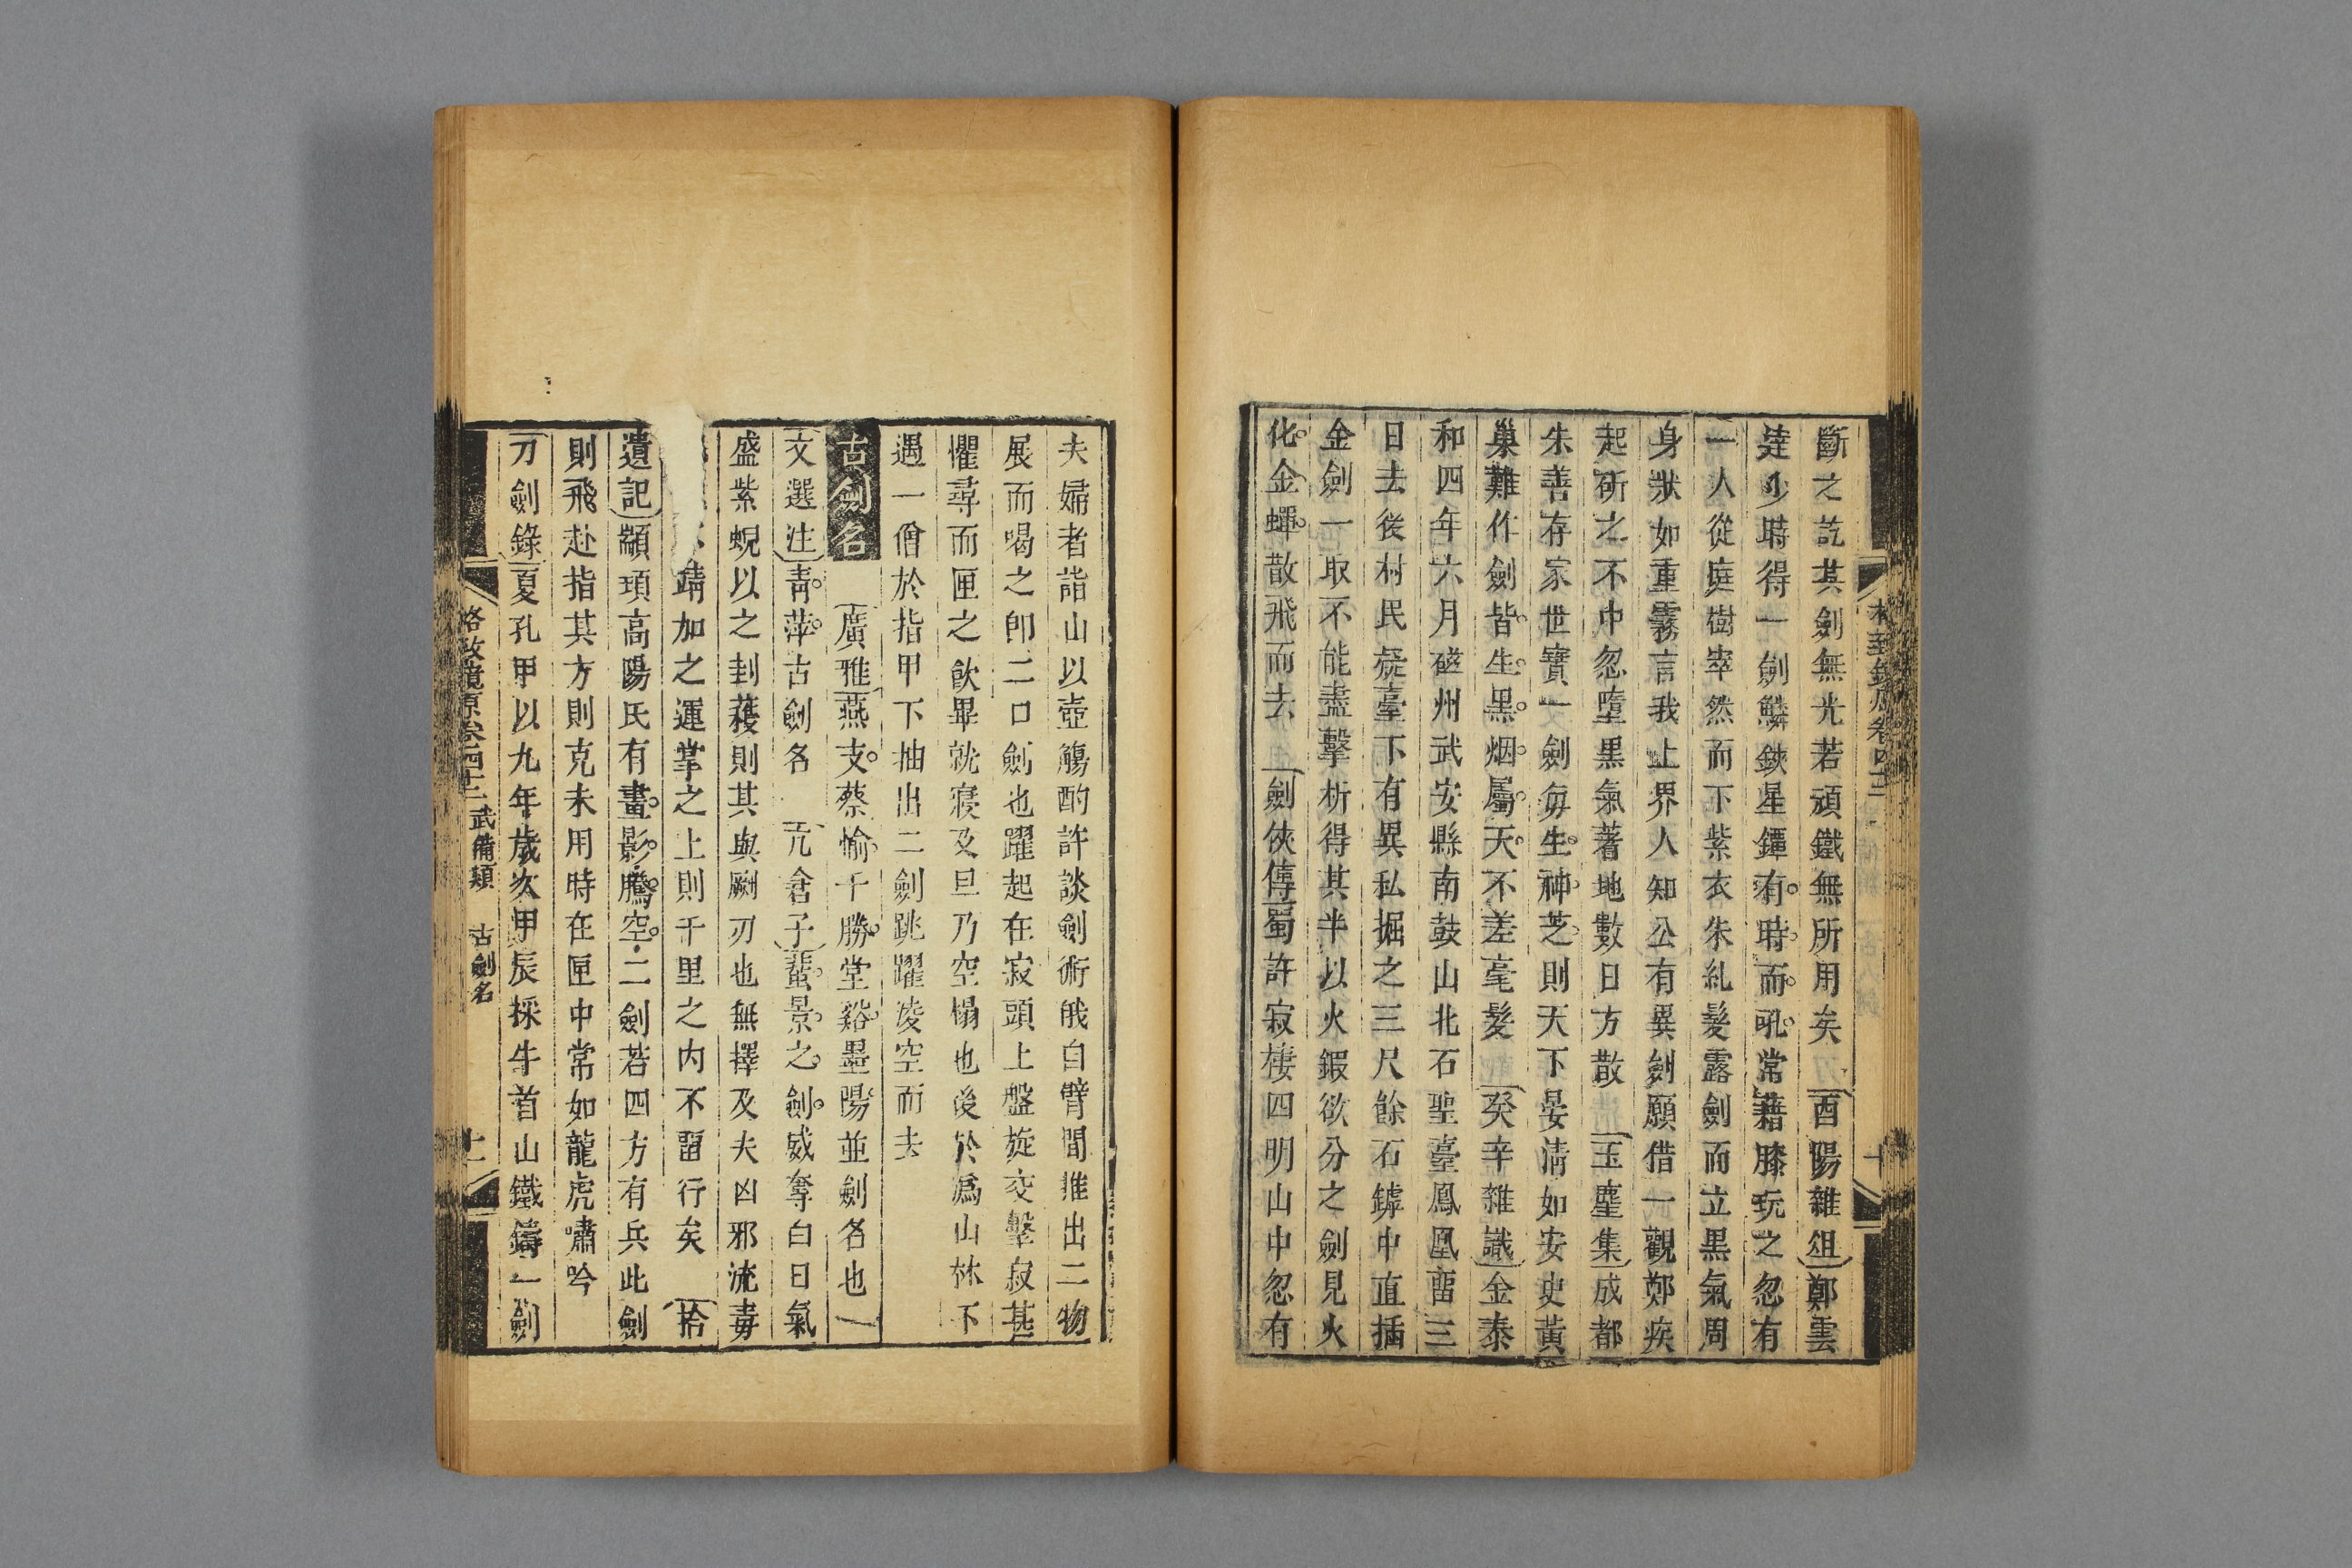 斷之訖其劍無光若頑鐵無所用矣 酉陽雜俎鄭雲
逵少時得一劍鱗鋏星鐔有時而吼常藉膝玩之忽有
一人從庭樹窣然而下紫衣朱虬髮露劍而立黒氣周
身狀如重霧言我上界人知公有異劍願借一觀鄭疾
起斫之不中忽墮黒氣著地數日方散 玉麈集成都
朱善存家世寶一劍每生神芝則天下晏淸如安史黃
巢難作劍皆生黒烟屬天不差毫髮 癸辛雜識金泰
和四年六月磁州武安縣南鼓山北石聖臺鳳凰畱三
日去後村民疑臺下有異私掘之三尺餘石罅中直插
金劍一取不能盡擊析得其半以火鍜欲分之劍見火
化金蟬散飛而去 劍俠傳蜀許寂棲四明山中忽有
夫婦者詣山以壺觴酌許談劍術俄自臂間推出二物
展而喝之卽二口劍也躍起在寂頭上盤旋交擊寂甚
懼尋而匣之飮畢就寢及旦乃空榻也後於爲山林下
遇一僧於指甲下抽出二劍跳躍凌空而去
古劍名 廣雅燕支蔡愉干勝堂谿墨陽並劍名也
文選注靑萍古劍名 亢倉子蜚景之劍威奪白日氣
盛紫蜺以之刲獲則其與劂刃也無擇及夫凶邪流毒
靖加之運掌之上則千里之内不畱行矣 拾
遺記顓頊高陽氏有畫影騰空二劍若四方有兵此劍
則飛赴指其方則克未用時在匣中常如龍虎嘯吟
刀劍錄夏孔甲以九年歲次甲辰採牛首山鐵鑄一劍
格致鏡原卷四十二 武備類 古劍名 十一